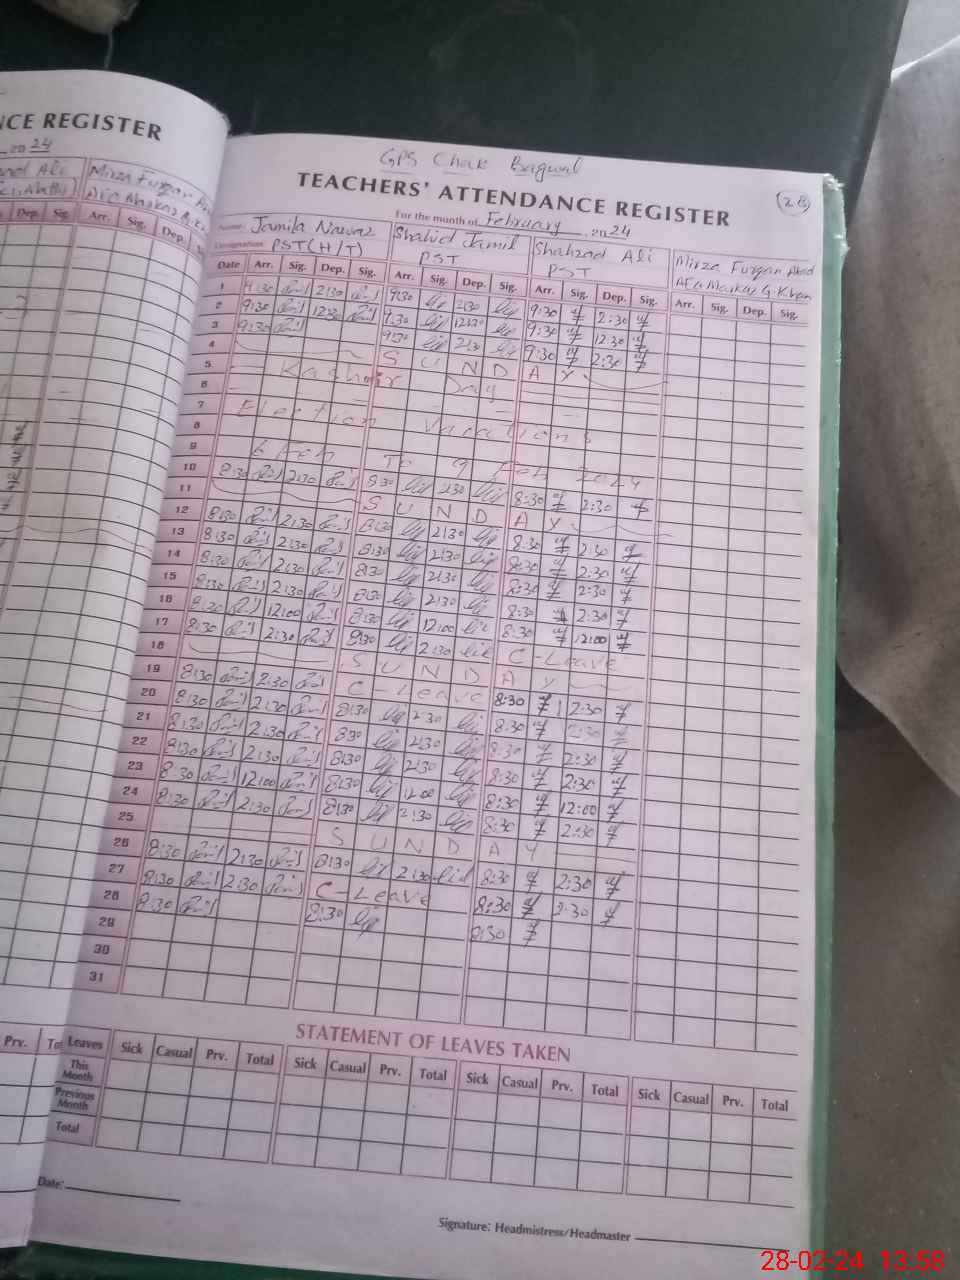 NCE REGISTER
2024
GPS Chak Bagwal
TEACHERS' ATTENDANCE REGISTER
28
For the month of February 2024
Name: Jamila Nawaz Shahid Jamil Shahzad Ali Mirza Furqan
Designation: PST (H/T) PST PST AEO Markaz G.Khan
Date Arr. Sig. Dep. Sig. Arr. Sig. Dep. Sig. Arr. Sig. Dep. Sig. Arr. Sig. Dep. Sig.
1 9:30 2:30 9:30 2:30 9:30 2:30
2 9:30 12:30 9:30 12:30 9:30 12:30
3 9:30 9:30 2:30 9:30 2:30
4 SUNDAY
5 Kashmir Day
6
7 Election Vacations
8
9 6 Feb To 9 Feb 2024
10 8:30 2:30 8:30 2:30 8:30 2:30
11 SUNDAY
12 8:30 2:30 8:30 2:30 8:30 2:30
13 8:30 2:30 8:30 2:30 8:30 2:30
14 8:30 2:30 8:30 2:30 8:30 2:30
15 8:30 2:30 8:30 2:30 8:30 2:30
16 8:30 12:00 8:30 12:00 8:30 12:00
17 8:30 2:30 8:30 2:30 C-Leave
18 SUNDAY
19 8:30 2:30 C-Leave 8:30 2:30
20 8:30 2:30 8:30 2:30 8:30 2:30
21 8:30 2:30 8:30 2:30 8:30 2:30
22 8:30 2:30 8:30 2:30 8:30 2:30
23 8:30 12:00 8:30 12:00 8:30 12:00
24 8:30 2:30 8:30 2:30 8:30 2:30
25 SUNDAY
26 8:30 2:30 8:30 2:30 8:30 2:30
27 8:30 2:30 C-Leave 8:30 2:30
28 8:30 8:30 8:30
29
30
31
STATEMENT OF LEAVES TAKEN
Leaves Sick Casual Prv. Total Sick Casual Prv. Total Sick Casual Prv. Total Sick Casual Prv. Total
This Month
Previous Month
Total
Date:
Signature: Headmistress/Headmaster
28-02-24 13:58